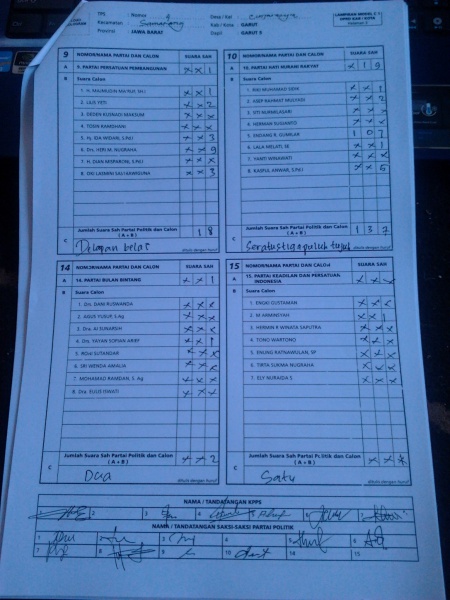 TPS : Nomor 9
Kecamatan : Samarang
Provinsi : JAWA BARAT
Desa / Kel :
Kab / Kota : GARUT
Dapil : GARUT 5
LAMPIRAN MODEL C 1
DPRD KAB / KOTA
9 NOMOR/NAMA PARTAI DAN CALON SUARA SAH
A 9. PARTAI PERSATUAN PEMBANGUNAN X X 1
B Suara Calon
2. LILIS YETI X X 2
3. DEDEN KUSNADI MAKSUM X X X
4. TITEN RAMDHANI X X X
5. Hj. IDA WIDIAR, S.Pd.I X X 3
6. Drs. HERI M. NUGRAHA X X 9
7. H. DIAN MISPARONI, S.Pd.I X X X
8. OKI LASMINI SASTRAWIGUNA X X 3
Jumlah Suara Sah Partai Politik dan Calon
( A + B ) 1 8
C Delapan belas
ditulis dengan huruf
10 NOMOR/NAMA PARTAI DAN CALON SUARA SAH
A 10. PARTAI HATI NURANI RAKYAT X 1 9
B Suara Calon
2. ASEP RAHMAT MULYADI X X 2
3. SITI NURMILASARI X X X
4. HERMAN SUGIANTO X X X
5. ENDANG R. GUMILAR 1 0 7
6. LALA MELATI, SE X X 1
7. YANTI WINAWATI X X X
8. KASFUL ANWAR, S.Pd.I X X 5
Jumlah Suara Sah Partai Politik dan Calon
( A + B ) 1 3 7
C Seratustigapuluh tujuh
ditulis dengan huruf
14 NOMOR/NAMA PARTAI DAN CALON SUARA SAH
A 14. PARTAI BULAN BINTANG X X 1
B Suara Calon
1. Drs. DANI RUSWANDA X X X
2. AGUS YUSUF, S.Ag X X X
3. Dra. AI SUNARSIH X X X
4. Drs. YAYAN SOFIAN ARIEF X X 1
5. ROHI SUTANDAR X X X
6. SRI WENDA AMALIA X X X
7. MOHAMAD RAMDAN, S. Ag X X X
8. Dra. EULIS ISWATI X X X
Jumlah Suara Sah Partai Politik dan Calon
( A + B ) X X 2
C Dua
ditulis dengan huruf
15 NOMOR/NAMA PARTAI DAN CALON SUARA SAH
A 15. PARTAI KEADILAN DAN PERSATUAN INDONESIA X X X
B Suara Calon
1. ENGKI GUSTAMAN X X X
2. M ARMINSYAH X X 1
3. HERMIN R WINATA SAPUTRA X X X
4. TONO WARTONO X X X
5. ENUNG RATNAWULAN, SP X X X
6. TIRTA SUKMA NUGRAHA X X X
7. ELY NURAIDA S X X X
Jumlah Suara Sah Partai Politik dan Calon
( A + B )
C Satu
ditulis dengan huruf
NAMA / TANDATANGAN KPPS
1 2 3 4 5 6 7
NAMA / TANDATANGAN SAKSI-SAKSI PARTAI POLITIK
1 2 3 4 5 6
7 8 9 10 14 15